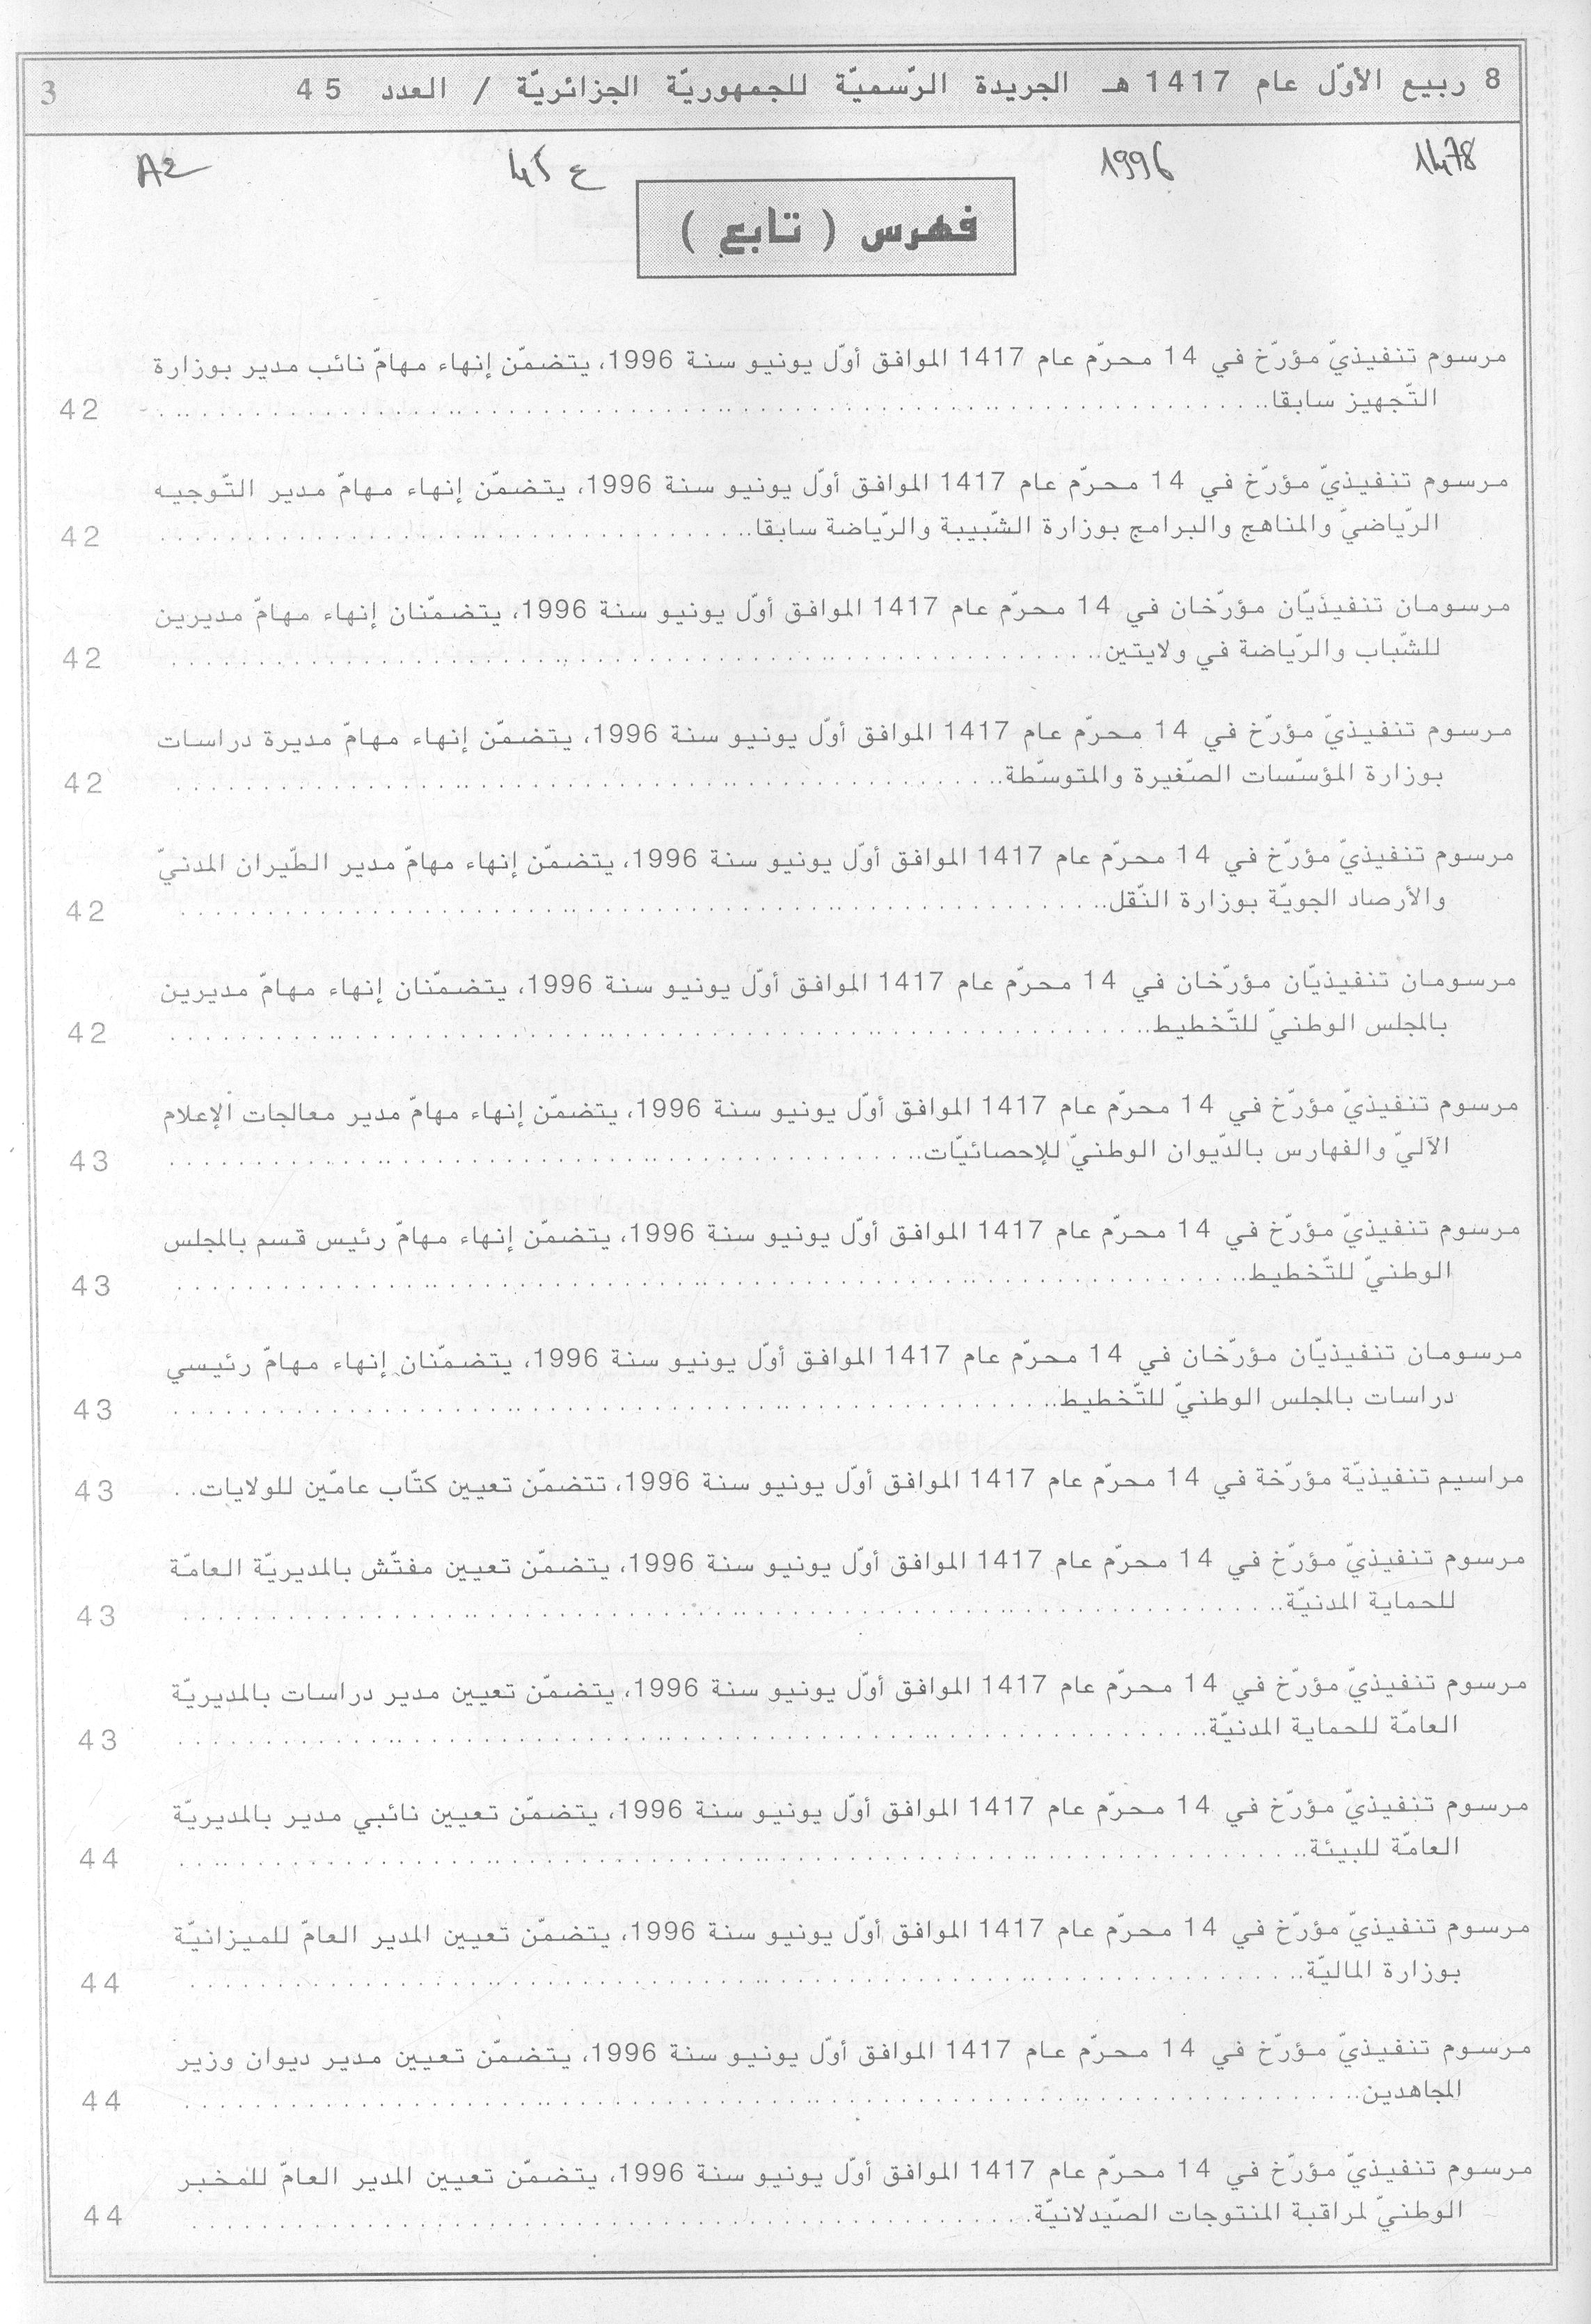 8 ربيع الأوّل عام 1417 هـ الجريدة الرّسميّة للجمهوريّة الجزائريّة / العدد 45 3
1478 1996 ع 45 A2
فهرس ( تابع )
مرسوم تنفيذيّ مؤرّخ في 14 محرّم عام 1417 الموافق أوّل يونيو سنة 1996، يتضمّن إنهاء مهامّ نائب مدير بوزارة
التّجهيز سابقا.................... 42
مرسوم تنفيذيّ مؤرّخ في 14 محرّم عام 1417 الموافق أوّل يونيو سنة 1996، يتضمّن إنهاء مهامّ مدير التّوجيه
الرّياضيّ والمناهج والبرامج بوزارة الشّبيبة والرّياضة سابقا.................... 42
مرسومان تنفيذيّان مؤرّخان في 14 محرّم عام 1417 الموافق أوّل يونيو سنة 1996، يتضمّنان إنهاء مهامّ مديرين
للشّباب والرّياضة في ولايتين.................... 42
مرسوم تنفيذيّ مؤرّخ في 14 محرّم عام 1417 الموافق أوّل يونيو سنة 1996، يتضمّن إنهاء مهامّ مديرة دراسات
بوزارة المؤسّسات الصّغيرة والمتوسّطة.................... 42
مرسوم تنفيذيّ مؤرّخ في 14 محرّم عام 1417 الموافق أوّل يونيو سنة 1996، يتضمّن إنهاء مهامّ مدير الطّيران المدنيّ
والأرصاد الجويّة بوزارة النّقل.................... 42
مرسومان تنفيذيّان مؤرّخان في 14 محرّم عام 1417 الموافق أوّل يونيو سنة 1996، يتضمّنان إنهاء مهامّ مديرين
بالمجلس الوطنيّ للتّخطيط.................... 42
مرسوم تنفيذيّ مؤرّخ في 14 محرّم عام 1417 الموافق أوّل يونيو سنة 1996، يتضمّن إنهاء مهامّ مدير معالجات الإعلام
الآليّ والفهارس بالدّيوان الوطنيّ للإحصائيّات.................... 43
مرسوم تنفيذيّ مؤرّخ في 14 محرّم عام 1417 الموافق أوّل يونيو سنة 1996، يتضمّن إنهاء مهامّ رئيس قسم بالمجلس
الوطنيّ للتّخطيط.................... 43
مرسومان تنفيذيّان مؤرّخان في 14 محرّم عام 1417 الموافق أوّل يونيو سنة 1996، يتضمّنان إنهاء مهامّ رئيسي
دراسات بالمجلس الوطنيّ للتّخطيط.................... 43
مراسيم تنفيذيّة مؤرّخة في 14 محرّم عام 1417 الموافق أوّل يونيو سنة 1996، تتضمّن تعيين كتّاب عامّين للولايات. . 43
مرسوم تنفيذيّ مؤرّخ في 14 محرّم عام 1417 الموافق أوّل يونيو سنة 1996، يتضمّن تعيين مفتّش بالمديريّة العامّة
للحماية المدنيّة.................... 43
مرسوم تنفيذيّ مؤرّخ في 14 محرّم عام 1417 الموافق أوّل يونيو سنة 1996، يتضمّن تعيين مدير دراسات بالمديريّة
العامّة للحماية المدنيّة.................... 43
مرسوم تنفيذيّ مؤرّخ في 14 محرّم عام 1417 الموافق أوّل يونيو سنة 1996، يتضمّن تعيين نائبي مدير بالمديريّة
العامّة للبيئة.................... 44
مرسوم تنفيذيّ مؤرّخ في 14 محرّم عام 1417 الموافق أوّل يونيو سنة 1996، يتضمّن تعيين المدير العامّ للميزانيّة
بوزارة الماليّة.................... 44
مرسوم تنفيذيّ مؤرّخ في 14 محرّم عام 1417 الموافق أوّل يونيو سنة 1996، يتضمّن تعيين مدير ديوان وزير
المجاهدين.................... 44
مرسوم تنفيذيّ مؤرّخ في 14 محرّم عام 1417 الموافق أوّل يونيو سنة 1996، يتضمّن تعيين المدير العامّ للمخبر
الوطنيّ لمراقبة المنتوجات الصّيدلانيّة.................... 44